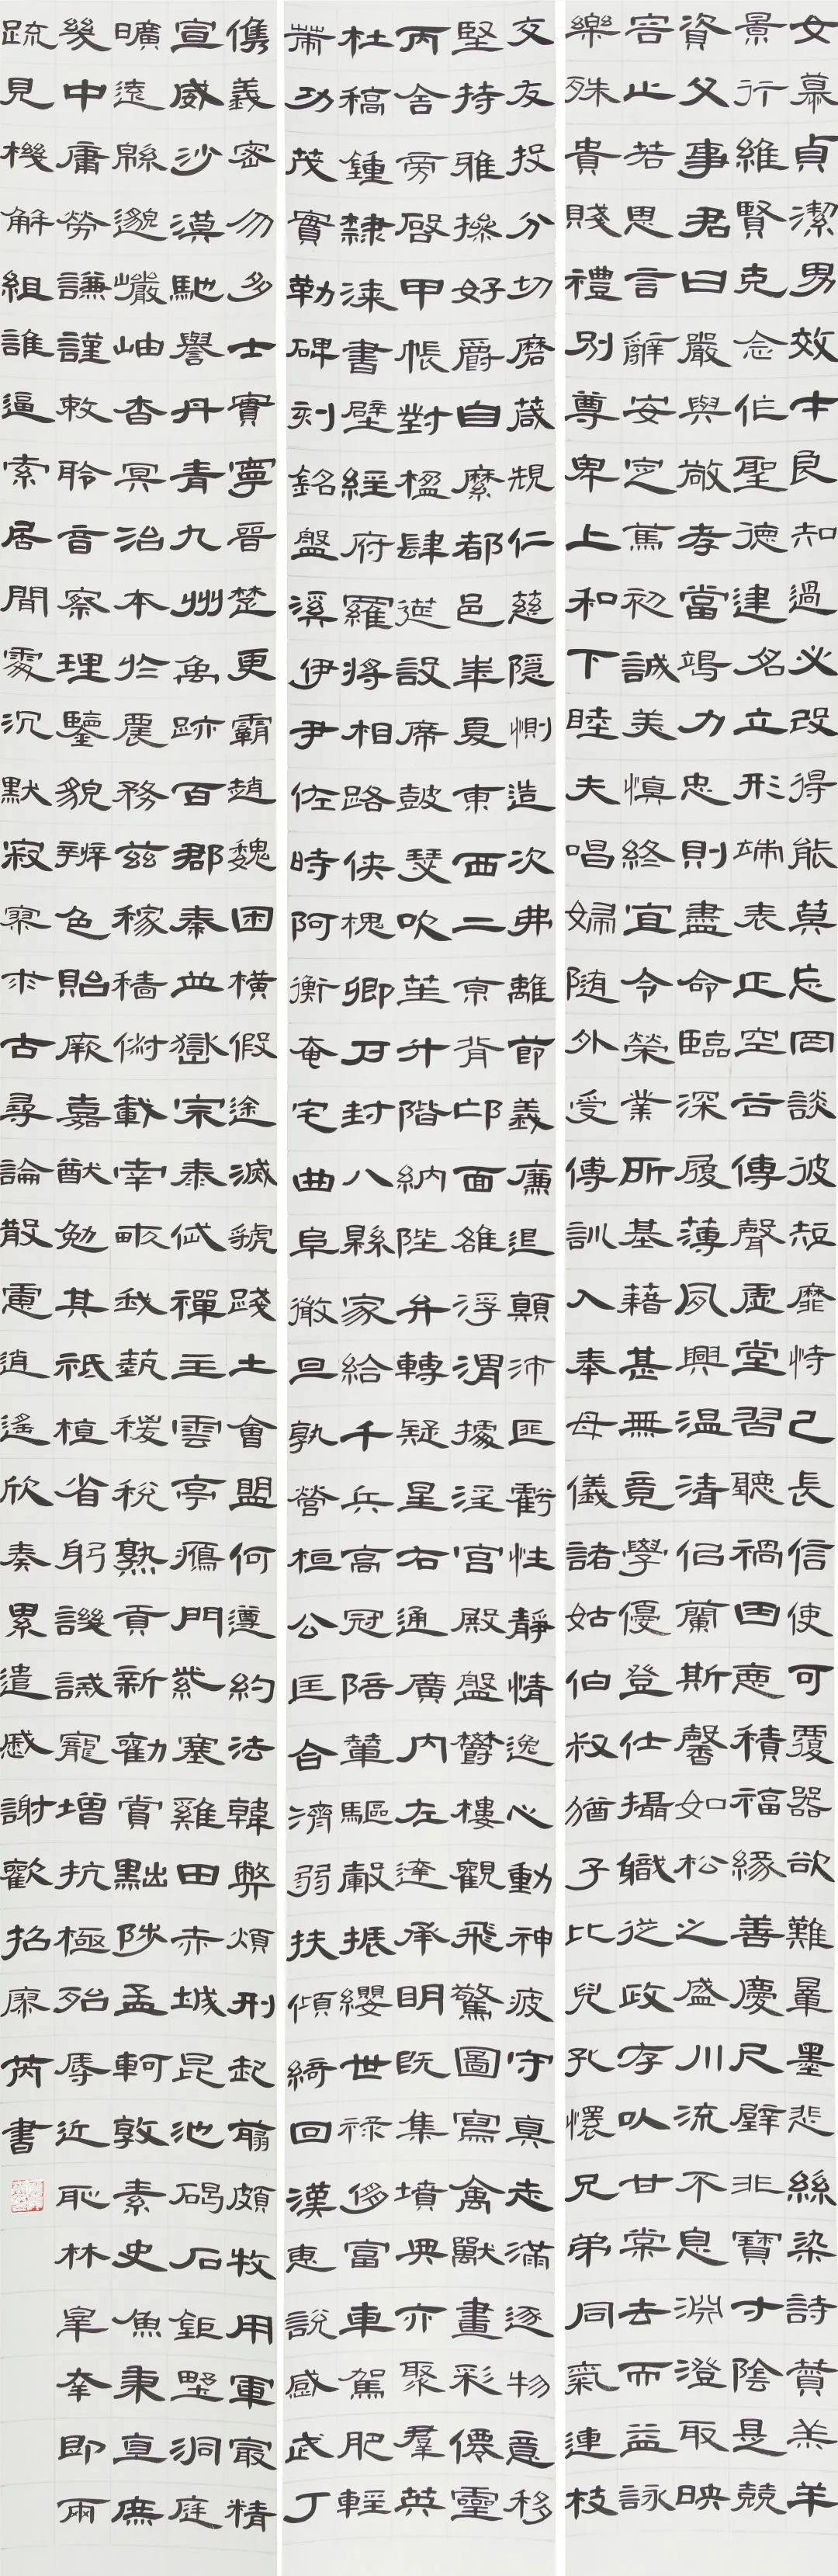 女慕貞潔男效才良知過必改得能莫忘罔談彼短靡恃己長信使可覆器欲難量墨悲絲染詩贊羔羊
景行維賢克念作聖德建名立形端表正空谷傳聲虛堂習聽禍因惡積福緣善慶尺璧非寶寸陰是競
資父事君曰嚴與敬孝當竭力忠則盡命臨深履薄夙興溫清侣蘭斯馨如松之盛川流不息淵澄取映
容止若思言辭安定篤初誠美慎終宜令榮業所基藉甚無竟學優登仕攝職從政存以甘棠去而益詠
樂殊貴賤禮別尊卑上和下睦夫唱婦隨外受傅訓入奉母儀諸姑伯叔猶子比兒孔懷兄弟同氣連枝
交友投分切磨箴規仁慈隱惻造次弗離節義廉退顛沛匪虧性靜情逸心動神疲守真志滿逐物意移
堅持雅操好爵自縻都邑華夏東西二京背邙面雒浮渭據涇宮殿盤鬱樓觀飛驚圖寫禽獸畫彩僊靈
丙舍旁啟甲帳對楹肆筵設席鼓瑟吹笙升階納陛弁轉疑星右通廣內左達承明既集墳典亦聚羣英
杜稿鍾隸漆書壁經府羅將相路俠槐卿戶封八縣家給千兵高冠陪輦驅轂振纓世祿侈富車駕肥輕
策功茂實勒碑刻銘盤溪伊尹佐時阿衡奄宅曲阜微旦孰營桓公匡合濟弱扶傾綺回漢惠說感武丁
儁義密勿多士實寧晉楚更霸趙魏困橫假途滅虢踐土會盟何遵約法韓弊煩刑起翦頗牧用軍最精
宣威沙漠馳譽丹青九州禹跡百郡秦并嶽宗泰岱禪主雲亭鴈門紫塞雞田赤城昆池碣石鉅野洞庭
曠遠緜邈巖岫杳冥治本於農務茲稼穡俶載南畝我蓺稷稅熟貢新勸賞黜陟孟軻敦素史魚秉直庶
幾中庸勞謙謹敕聆音察理鑒貌辨色貽厥嘉猷勉其祗植省躬譏誡寵增抗極殆辱近恥林皋幸即兩
疏見機解組誰逼索居閒處沉默寂寥求古尋論散慮逍遙欣奏累遣慼謝歡招廉芮書